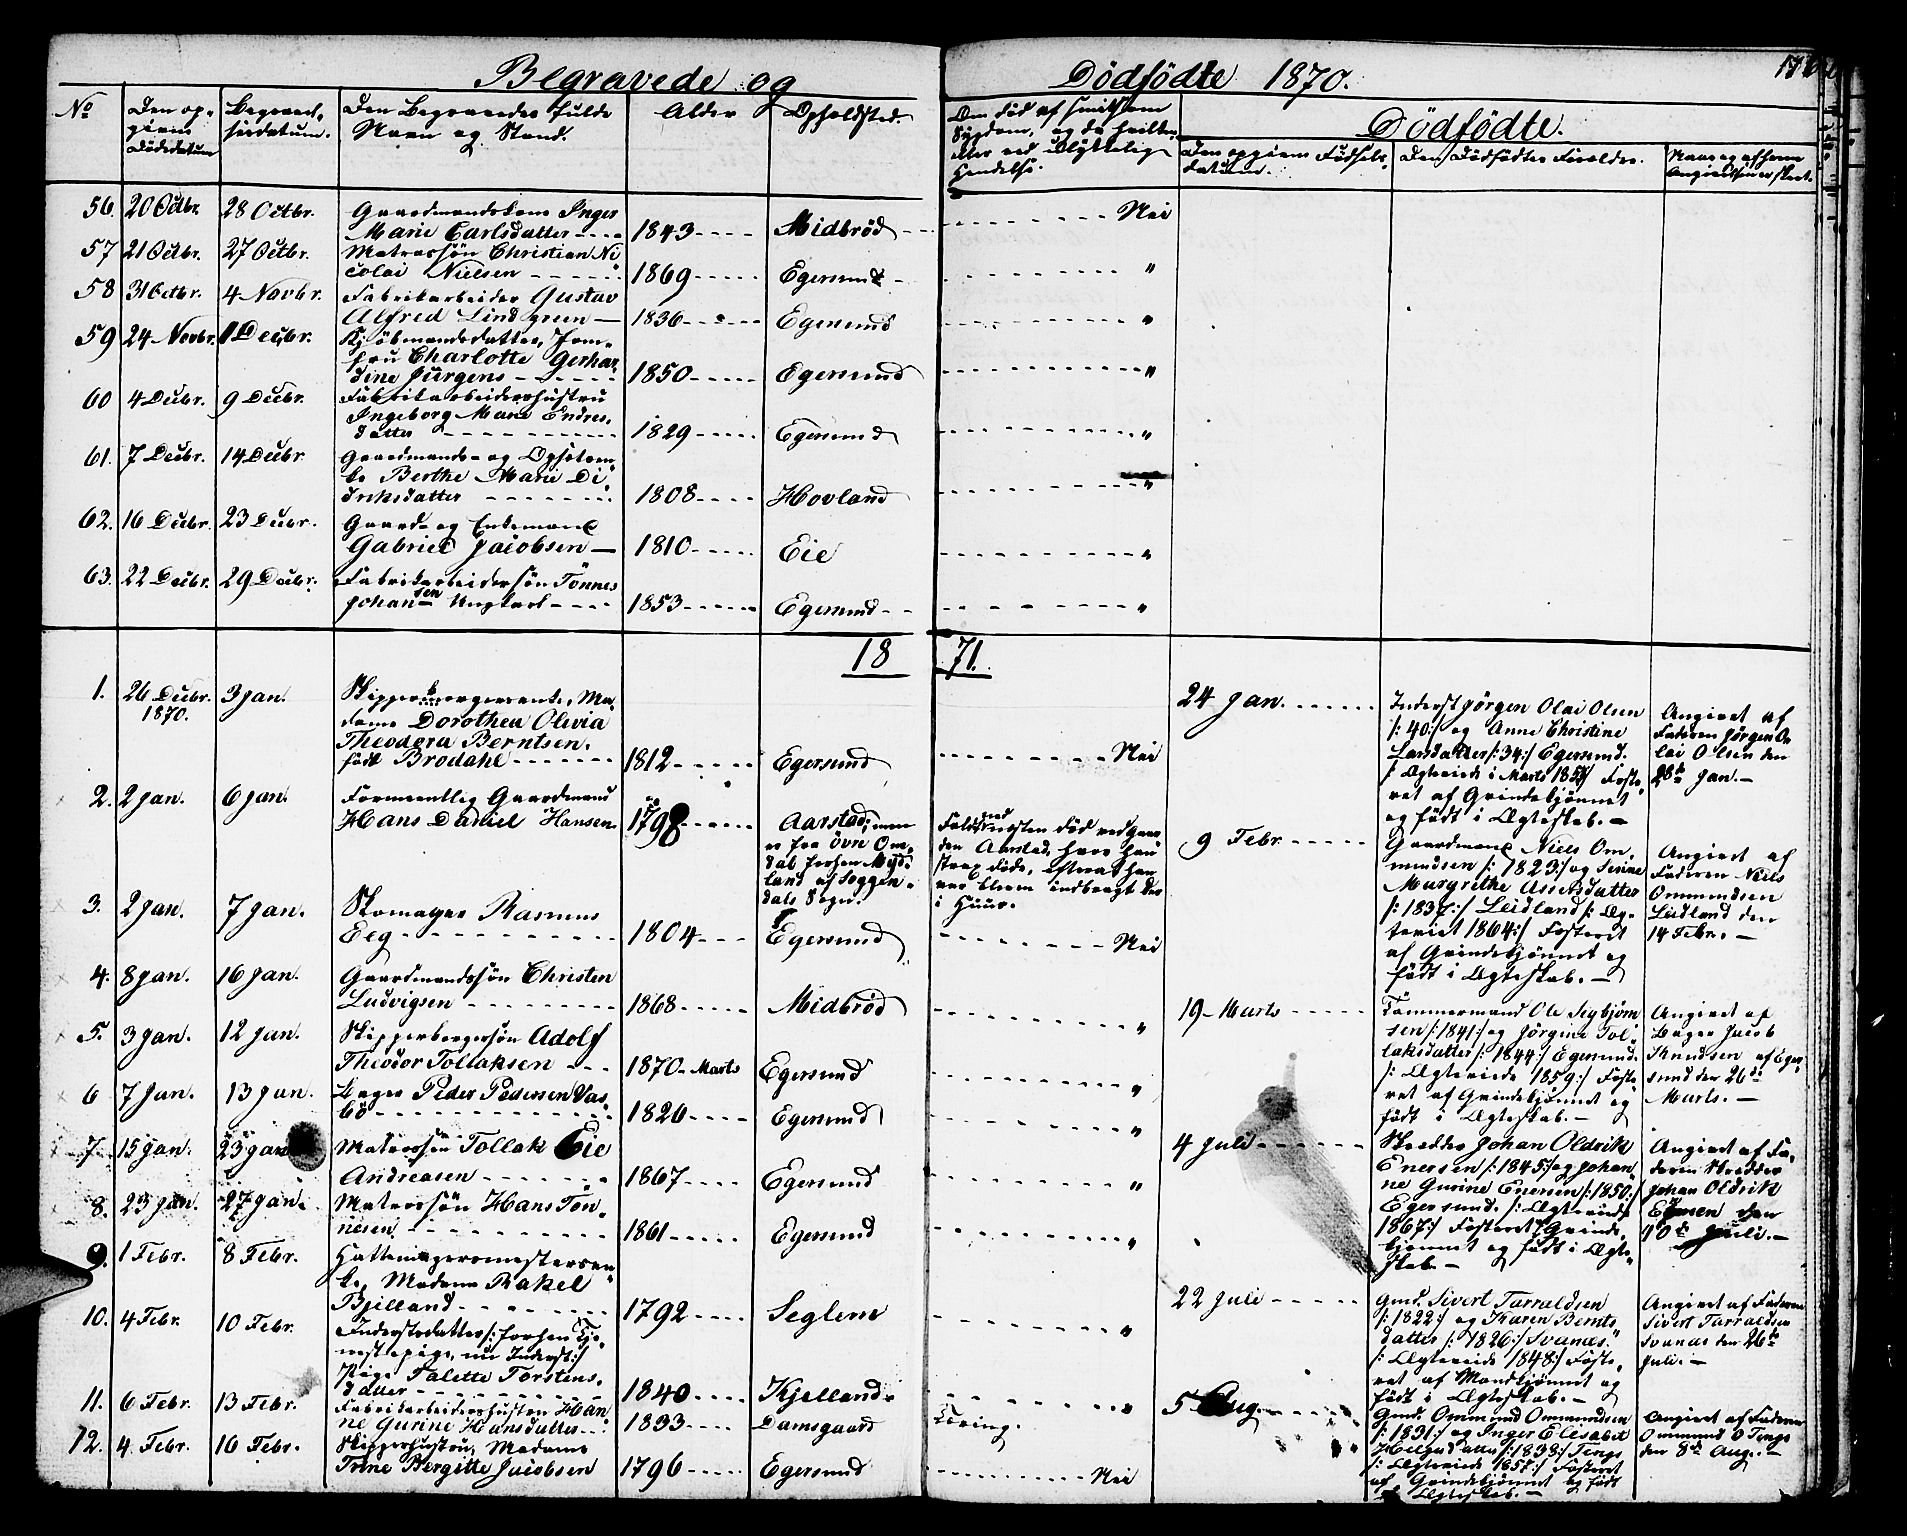 Begravede og Dödfödte 1870.
No
Den opgivne Dödsdatum
Begravelsesdatum.
Den Begravedes fulde Navn og Stand.
Alder
Opholdsted.
Om död af smitsom Sygdom, og da hvilken eller ved ulykkelig Hendelse.
Dödfödte.
Den opgivne Födsels datum.
Den Dödfödtes Foreldre.
Naar og af hvem Angivelsen er skeet.
56. 20 Octbr. 28 Octbr. Gaardmandskone Inger
Marie Carlsdatter - - - 1843 - - - - Midbröd - - - - - - - Nei
57 21 Octbr. 27 Octbr. Matrossön Christian Ni
colai Nielsen - - - - - 1869 - - - - Egersund - - - - - - - "
58 31 Octbr. 4 Novbr. Fabrikarbeider Gustav
Alfred Lindgreen — 1836 - - - - Egersund - - - - - - "
59 24 Novbr. 1 Decbr. Kjöbmandsdatter, Jom-
fru Charlotte Gerhar-
dine Jürgens - - - - - 1850 - - - - Egersund - - - - - - "
60 4 Decbr. 9 Decbr. Fabrikarbeiderhustru
Ingeborg Marie Endres-
datter - - - - - - - 1829 - - - - Egersund - - - - - - "
61. 7 Decbr. 14 Decbr Gaardmands- og Opsitteren-
ke Berthe Marie Di-
driksdatter - - - - - 1808 - - - - Hovland - - - - - - "
62. 16 Decbr. 23 Decbr. Gaard- og Enkemand
Gabriel Jacobsen — 1810 - - - - Eie - - - - - - "
63. 22 Decbr. 29 Decbr. Fabrikarbeidersön Tönnes
Johansen Ungkarl - - - - 1853 - - - - Egersund - - - - - - "
18 71.
1. 26 Decbr. 1870. 3 Jan. Skipperborgerenke, Ma-
dame Dorothea Olivia
Theodora Berntsen,
födt Brodahl - - - - - 1812 - - - - Egersund - - - - - - Nei
2. 2 Jan. 6 Jan. Formeentlig Gaardmand
Hans Daniel Hansen. 1798 - - - - Aarstad; men
er fra övre Om-
dal forhen Myd-
land af Soggen-
dals Sogn.
den Aarstad, hvor han
strax döde, efterat han
var bleven indbragt der
i Huus.
3. 2 Jan. 7 Jan. Skomager Rasmus
Eeg - - - - - - - - 1804 - - - Egersund - - - - - - Nei
4. 8 Jan. 16 Jan. Gaardmandssön Christen
Ludvigsen - - - - - - 1868 - - - - Midbröd - - - - - - "
5. 3 Jan. 12 Jan. Skipperborgersön Adolf
Theodor Tollaksen - - - 1870 - Marts Egersund - - - - - - "
6 7 Jan. 13 Jan. Bager Peder Pedersen Vas-
bö - - - - - - - - - 1826 - - - - Egersund - - - - - - "
7. 15 Jan. 23 Jan Matrossön Tollak Eie
Andreasen - - - - - - 1867 - - - - Egersund - - - - - - "
8. 23 Jan. 27 Jan. Matrossön Hans Tön-
nesen - - - - - - - - 1861 - - - - Egersund - - - - - - "
9. 1 Febr. 8 Febr. Hattemagermestersen-
ke, Madame Rakel
Bjelland - - - - - - 1792 - - - - Seglem - - - - - - "
10. 4 Febr. 10 Febr. Inderstsdatter /: forhen Tje-
nestepige, nu Inderst :/
Pige Talette Torstens-
datter - - - - - - - 1840 - - - - Kjelland - - - - - - - "
11. 6 Febr. 13 Febr. Fabrikarbeiderhustru Han-
ne Gurine Hansdatter - - 1833 - - - - Damsgaard Tæring.
12. 4 Febr. 16 Febr. Skipperhustru, Madame
Trine Bergitte Jacobsen 1796 - - - - Egersund - - - - - - Nei
24 Jan. - - - - - - Inderst Jörgen Olai Olsen
/: 40 :/ og Anne Christine
Larsdatter /: 34 :/ Egersund.
/: Ægteviede i Marts 1857 :/ Foste-
ret af Qvindekjönnet
og födt i Ægteskab. —
Angivet af
Faderen Jörgen O-
lai Olsen den
28de Jan. —
9 Febr. - - - - - - Gaardmand Niels Om-
mundsen /: 1823 :/ og Serine
Margrethe Assersdatter
/: 1837 :/ Leidland /: Æg-
teviet 1864 :/ Fosteret
af Qvindekjönnet og
födt i Ægteskab. —
Angivet af
Faderen Niels
Ommundsen
Leidland den
14 Febr. —
19 - Marts - - - - - - Tömmermand Ole Sigbjörn
sen /: 1841 :/ og Jörgine Tol-
laksdatter /: 1844 :/ Egersund.
/: Ægteviede 1859 :/ Foste-
ret af Qvindekjönnet og
födt i Ægteskab. —
Angivet af
Bager Jacob
Knudsen af Eger-
sund den 26de
Marts. —
4 Juli - - - - - - Skredder Johan Oldrik
Enersen /: 1845 :/ og Johan-
ne Gurine Enersen /: 1850 :/
Egersund. /: Ægteviede
1867 :/ Fosteret Qvinde-
kjönnet og födt i Ægte-
skab. —
Angivet af Fa-
deren Skredder
Johan Oldrik
Enersen den
10de Juli. —
22 Juli - - - - - - Gmd. Sivert Tarraldsen
/: 1822 :/ og Karen Bernts-
datter /: 1826 :/ Svanæs.
/: Ægteviede 1848 :/ Foste-
ret af Mandkjönnet og
födt i Ægteskab. —
Angivet af Faderen
Sivert Tarraldsen
Svanæs den 26de
Juli. —
5 Aug. - - - - - - Gmd. Ommund Ommundsen
/: 1831 :/ og Inger Elisabet
Helgesdatter /: 1838 :/ Tengs
/: Ægteviede 1857 :/ Fosteret
af Qvindekjönnet og födt
i Ægteskab. —
Angivet af Faderen
Ommund O Tengs
den 8de Aug. —